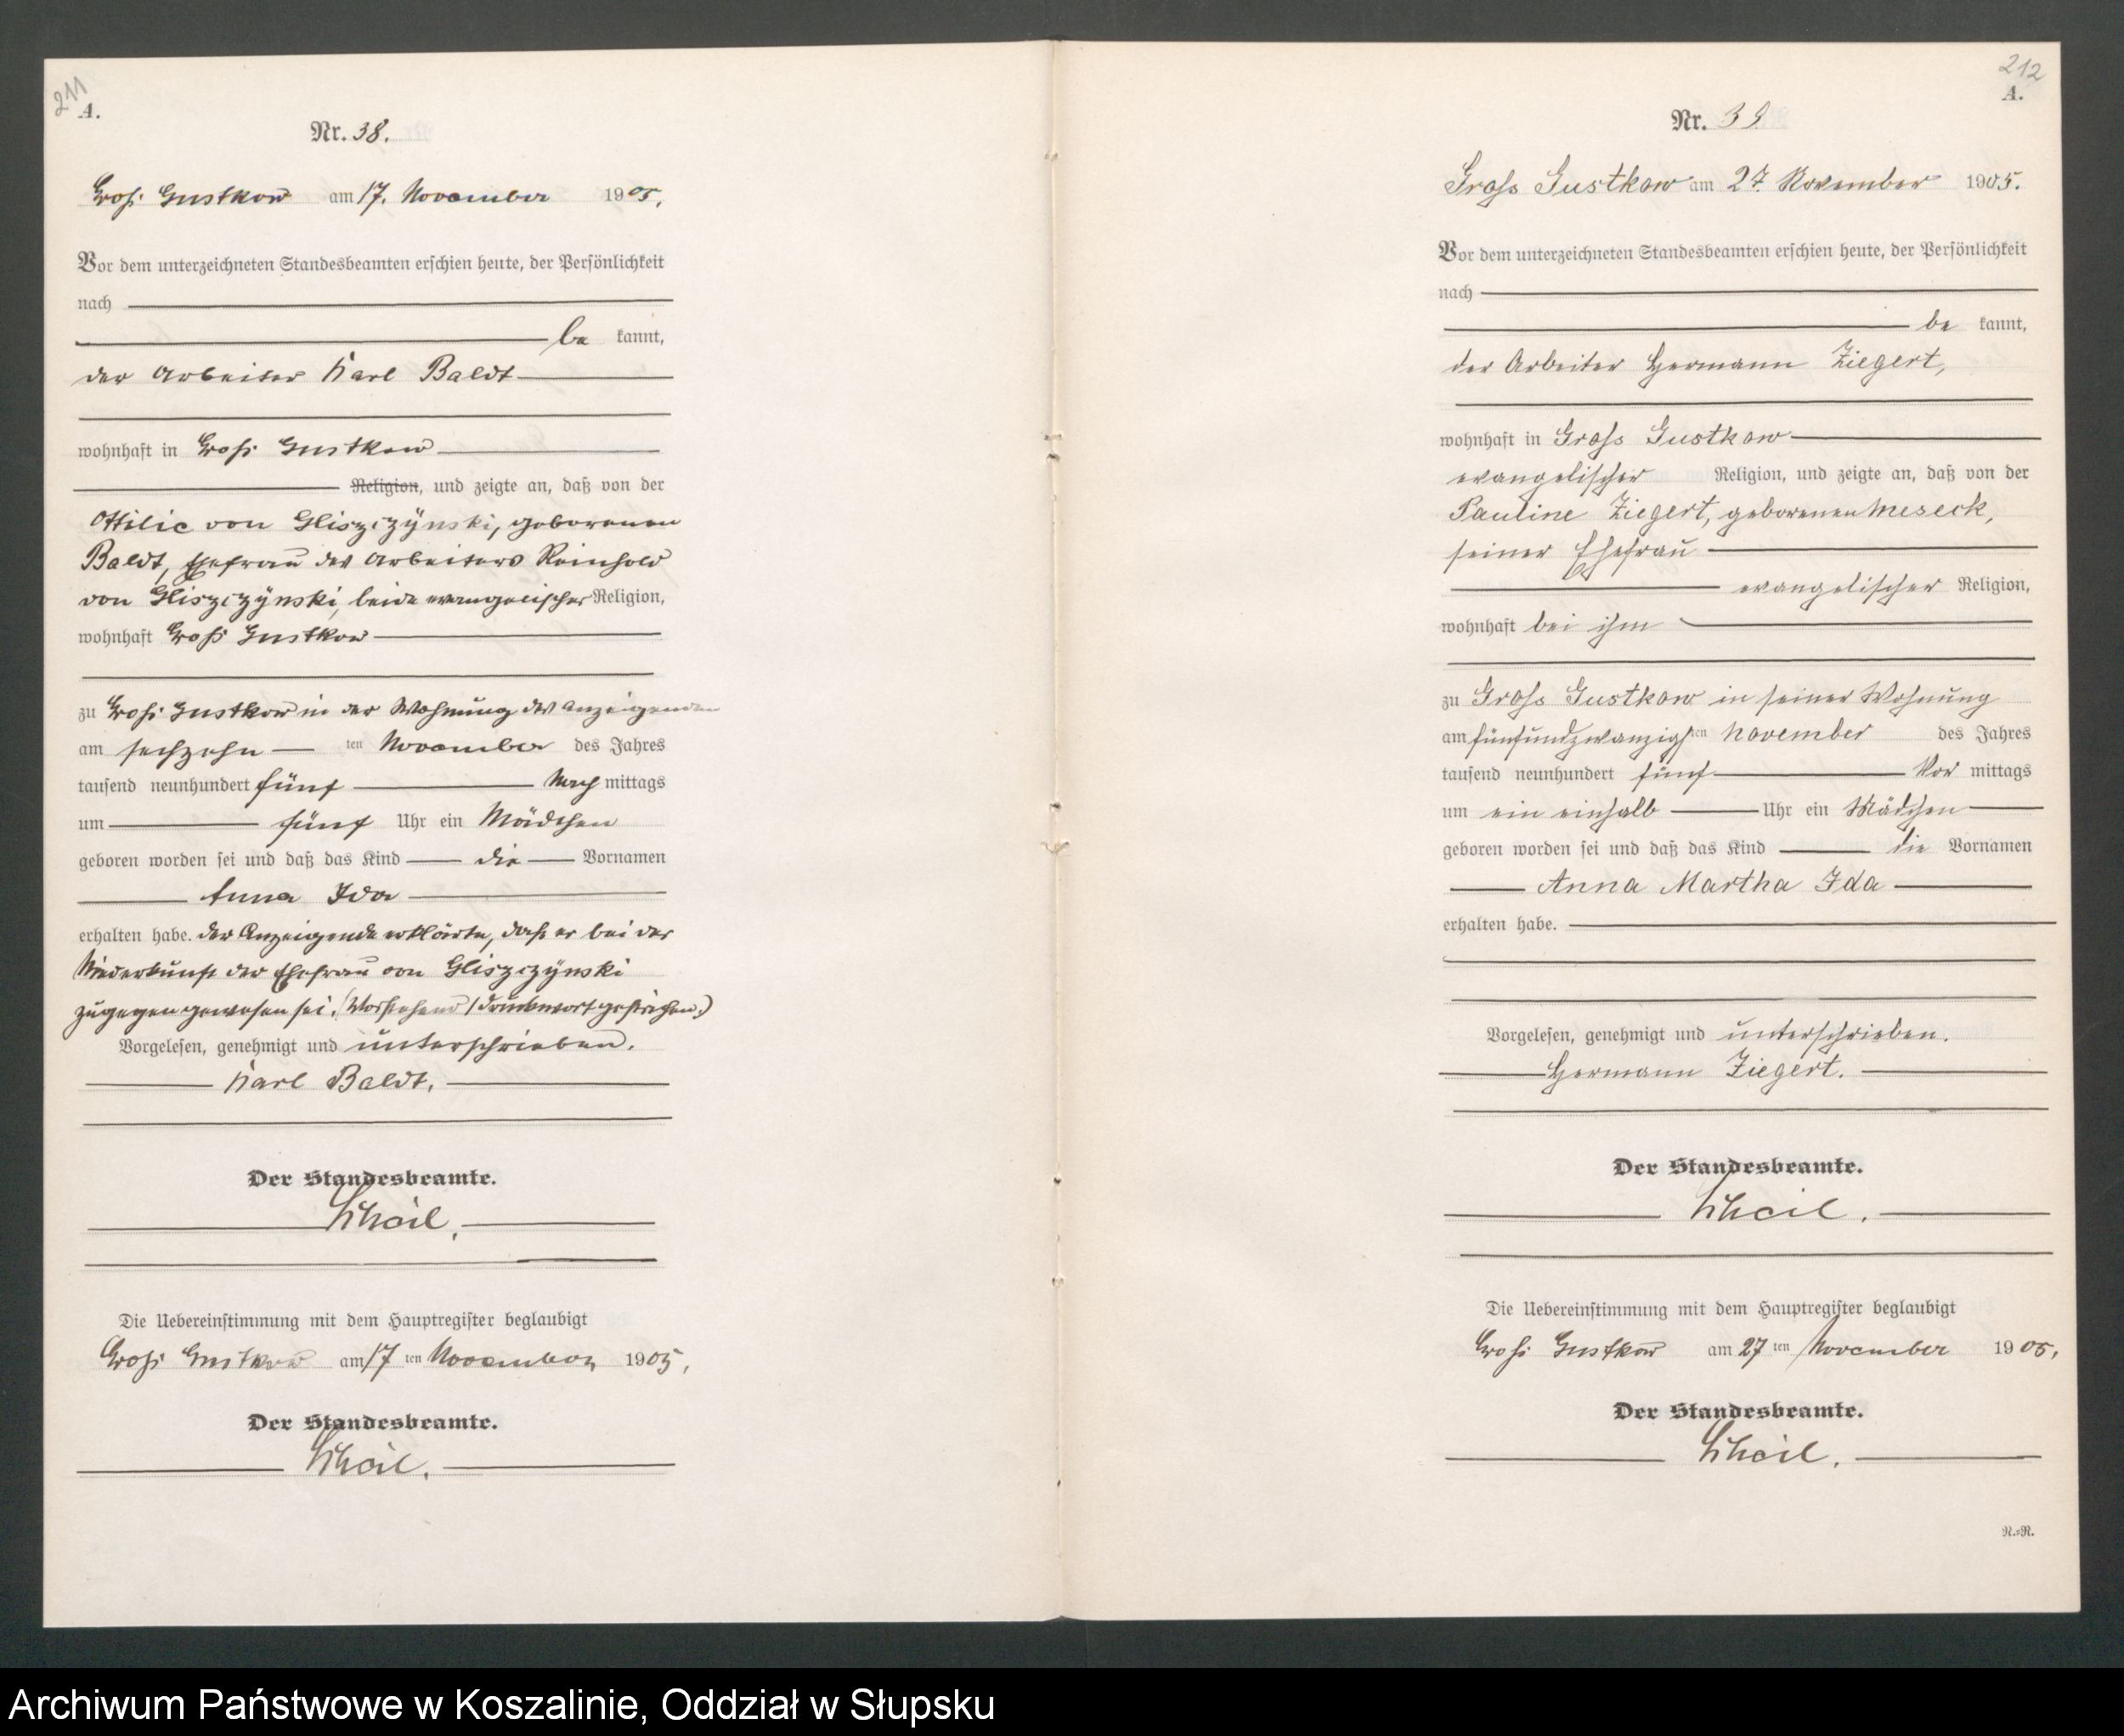 211
A.
Nr. 38.
Groß Gustkow am 17. November 1905.
Vor dem unterzeichneten Standesbeamten erschien heute, der Persönlichkeit
nach
be kannt,
der Arbeiter Karl Baldt
wohnhaft in Groß Gustkow
Religion, und zeigte an, daß von der
Ottilie von Gliszczynski, geborenen
Baldt, Ehefrau des Arbeiters Reinhold
von Gliszczynski, beide evangelischer Religion,
wohnhaft Groß Gustkow
zu Groß Gustkow in der Wohnung des Anzeigenden
am sechzehn ten November des Jahres
tausend neunhundert fünf Nach mittags
um fünf Uhr ein Mädchen
geboren worden sei und daß das Kind die Vornamen
Anna Ida
erhalten habe. Der Anzeigende erklärte, daß er bei der
Niederkunft der Ehefrau von Gliszczynski
zugegen gewesen sei. (Vorstehend 1 Druckwort gestrichen.)
Vorgelesen, genehmigt und unterschrieben.
Karl Baldt.
Der Standesbeamte.
Die Uebereinstimmung mit dem Hauptregister beglaubigt
Groß Gustkow am 17 ten November 1905.
Der Standesbeamte.
212
A.
Nr. 39
Gross Gustkow am 27. November 1905.
Vor dem unterzeichneten Standesbeamten erschien heute, der Persönlichkeit
nach
be kannt,
der Arbeiter Hermann Ziegert,
wohnhaft in Gross Gustkow
evangelischer Religion, und zeigte an, daß von der
Pauline Ziegert, geborenen Meseck,
seiner Ehefrau
evangelischer Religion,
wohnhaft bei ihm
zu Gross Gustkow in seiner Wohnung
am fünfundzwanzigsten November des Jahres
tausend neunhundert fünf Vor mittags
um ein einhalb Uhr ein Mädchen
geboren worden sei und daß das Kind die Vornamen
Anna Martha Ida
erhalten habe.
Vorgelesen, genehmigt und unterschrieben.
Hermann Ziegert.
Der Standesbeamte.
Die Uebereinstimmung mit dem Hauptregister beglaubigt
Groß Gustkow am 27 ten November 1905.
Der Standesbeamte.
N.=N.
Archiwum Państwowe w Koszalinie, Oddział w Słupsku